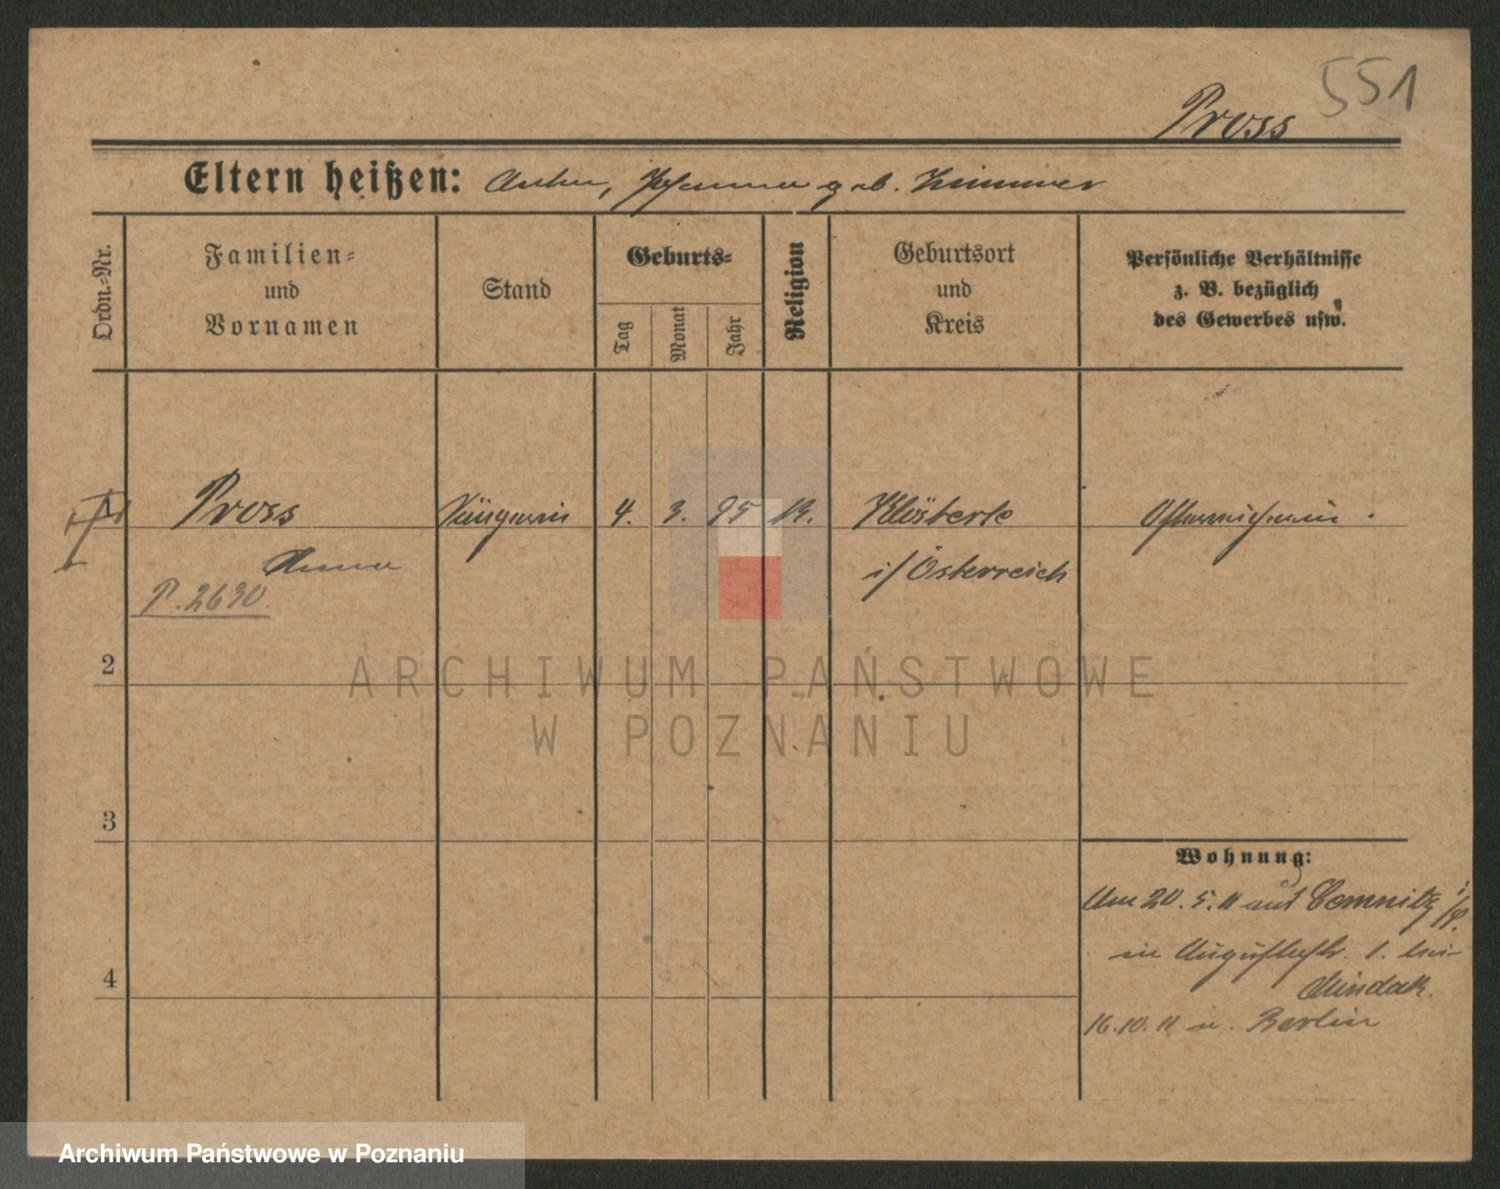 551
Pross
Eltern heißen: Anton, Johanna geb. Kimmer
Ordn.=Nr.
Familien=
und
Vornamen
Stand
Geburts=
Tag
Monat
Jahr
Religion
Geburtsort
und
Kreis
Persönliche Verhältnisse
z. B. bezüglich
des Gewerbes usw.
1 Pross Sängerin 4. 3. 95 K. Klösterle
Anna i/Österreich
P. 2690
2
3
4
Wohnung:
Am 20. 5. 11 aus Comnitz
in Auguststr. 1. bei
Mindak.
16. 10. 11 n. Berlin
ARCHIWUM PAŃSTWOWE
W POZNANIU
Archiwum Państwowe w Poznaniu